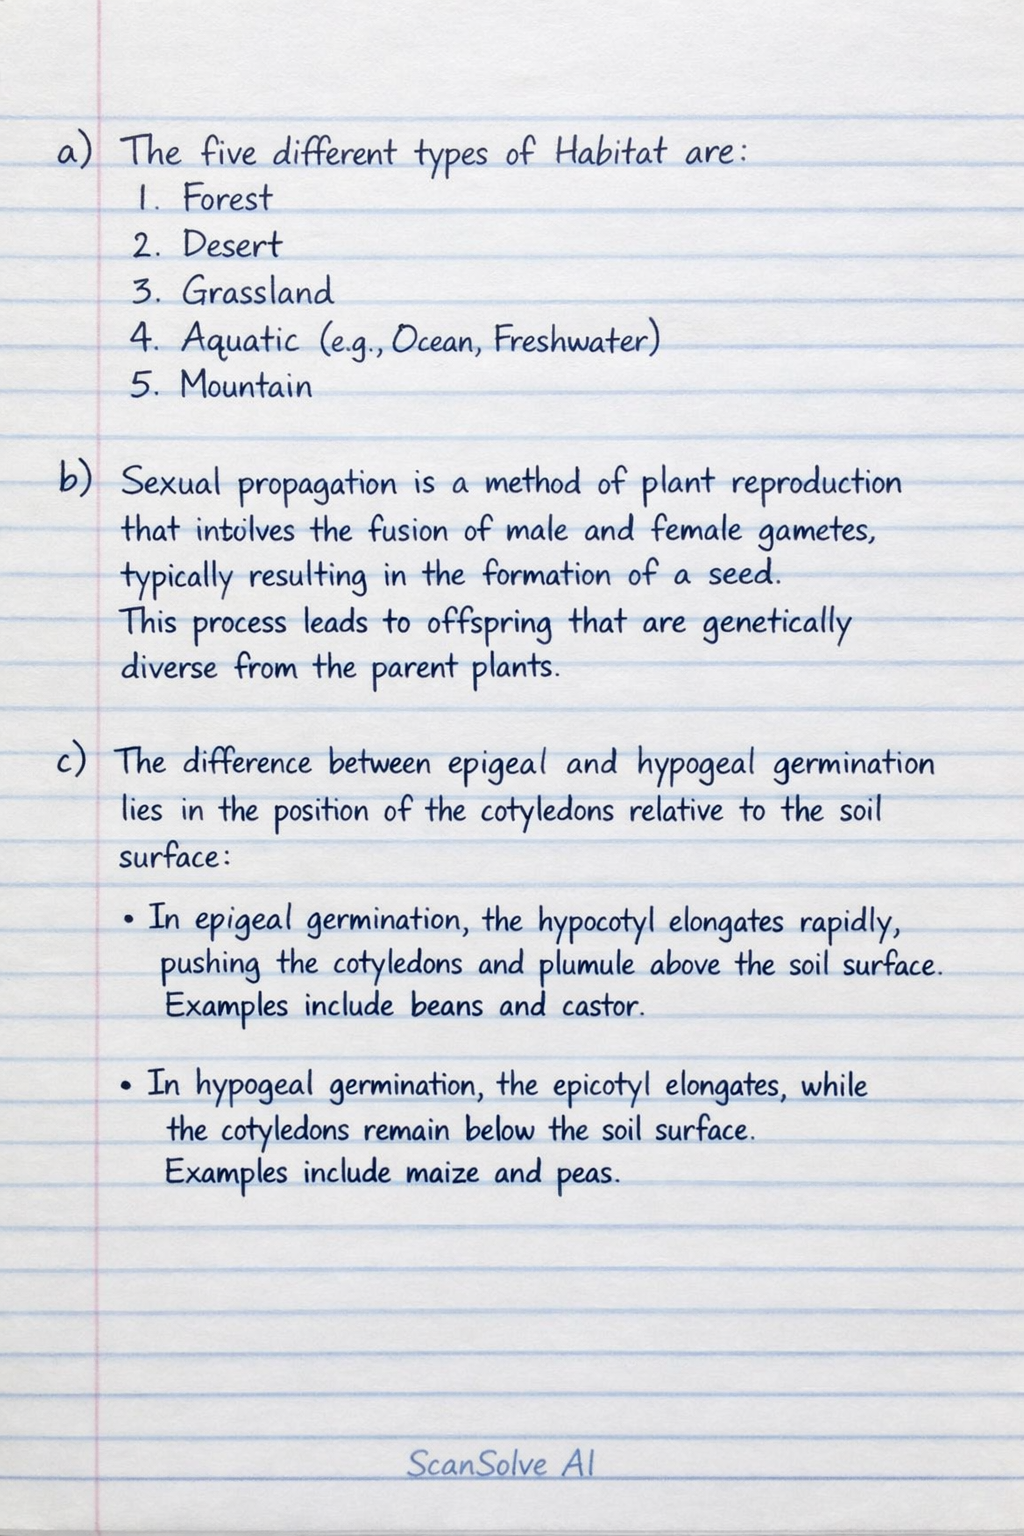 a) The five different types of Habitat are:
1. Forest
2. Desert
3. Grassland
4. Aquatic (e.g., Ocean, Freshwater)
5. Mountain
b) Sexual propagation is a method of plant reproduction
that intolves the fusion of male and female gametes,
typically resulting in the formation of a seed.
This process leads to offspring that are genetically
diverse from the parent plants.
c) The difference between epigeal and hypogeal germination
lies in the position of the cotyledons relative to the soil
surface:
• In epigeal germination, the hypocotyl elongates rapidly,
pushing the cotyledons and plumule above the soil surface.
Examples include beans and castor.
• In hypogeal germination, the epicotyl elongates, while
the cotyledons remain below the soil surface.
Examples include maize and peas.
ScanSolve AI